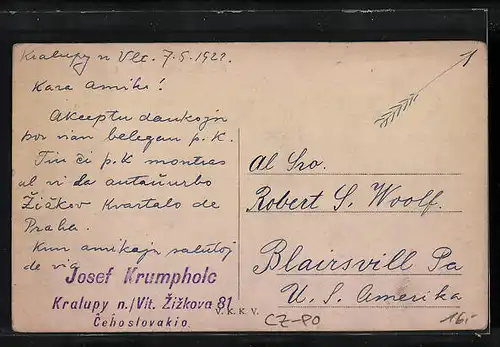 Kralupy n Vlt. 7.5.1922.
Kara amiko!
Akceptu dankojn
por vian belegan p.K.
Tiu ĉi p.K montras
al vi la antaŭurbo
Žižkov kvartalo de
Praha.
Kun amikajn salutoj
de via
Josef Krumpholc
Kralupy n./Vlt. Žižkova 81
Ĉehoslovakio
Al Sro.
Robert S. Woolf.
Blairsvill Pa
U. S. Amerika
V. K. K. V.
CZ-PO
16,-